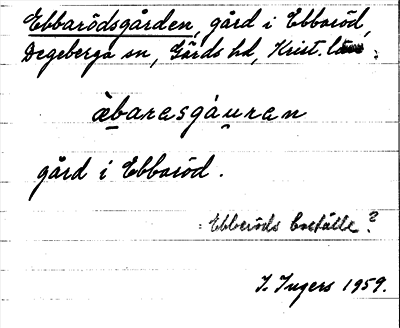 Ebbarödsgården, gård i Ebbaröd,
Degeberga sn, Gärds hd, Krist. län :
àbarasgáuran
gård i Ebbaröd.
: Ebberöds boställe?
I. Ingers 1959.